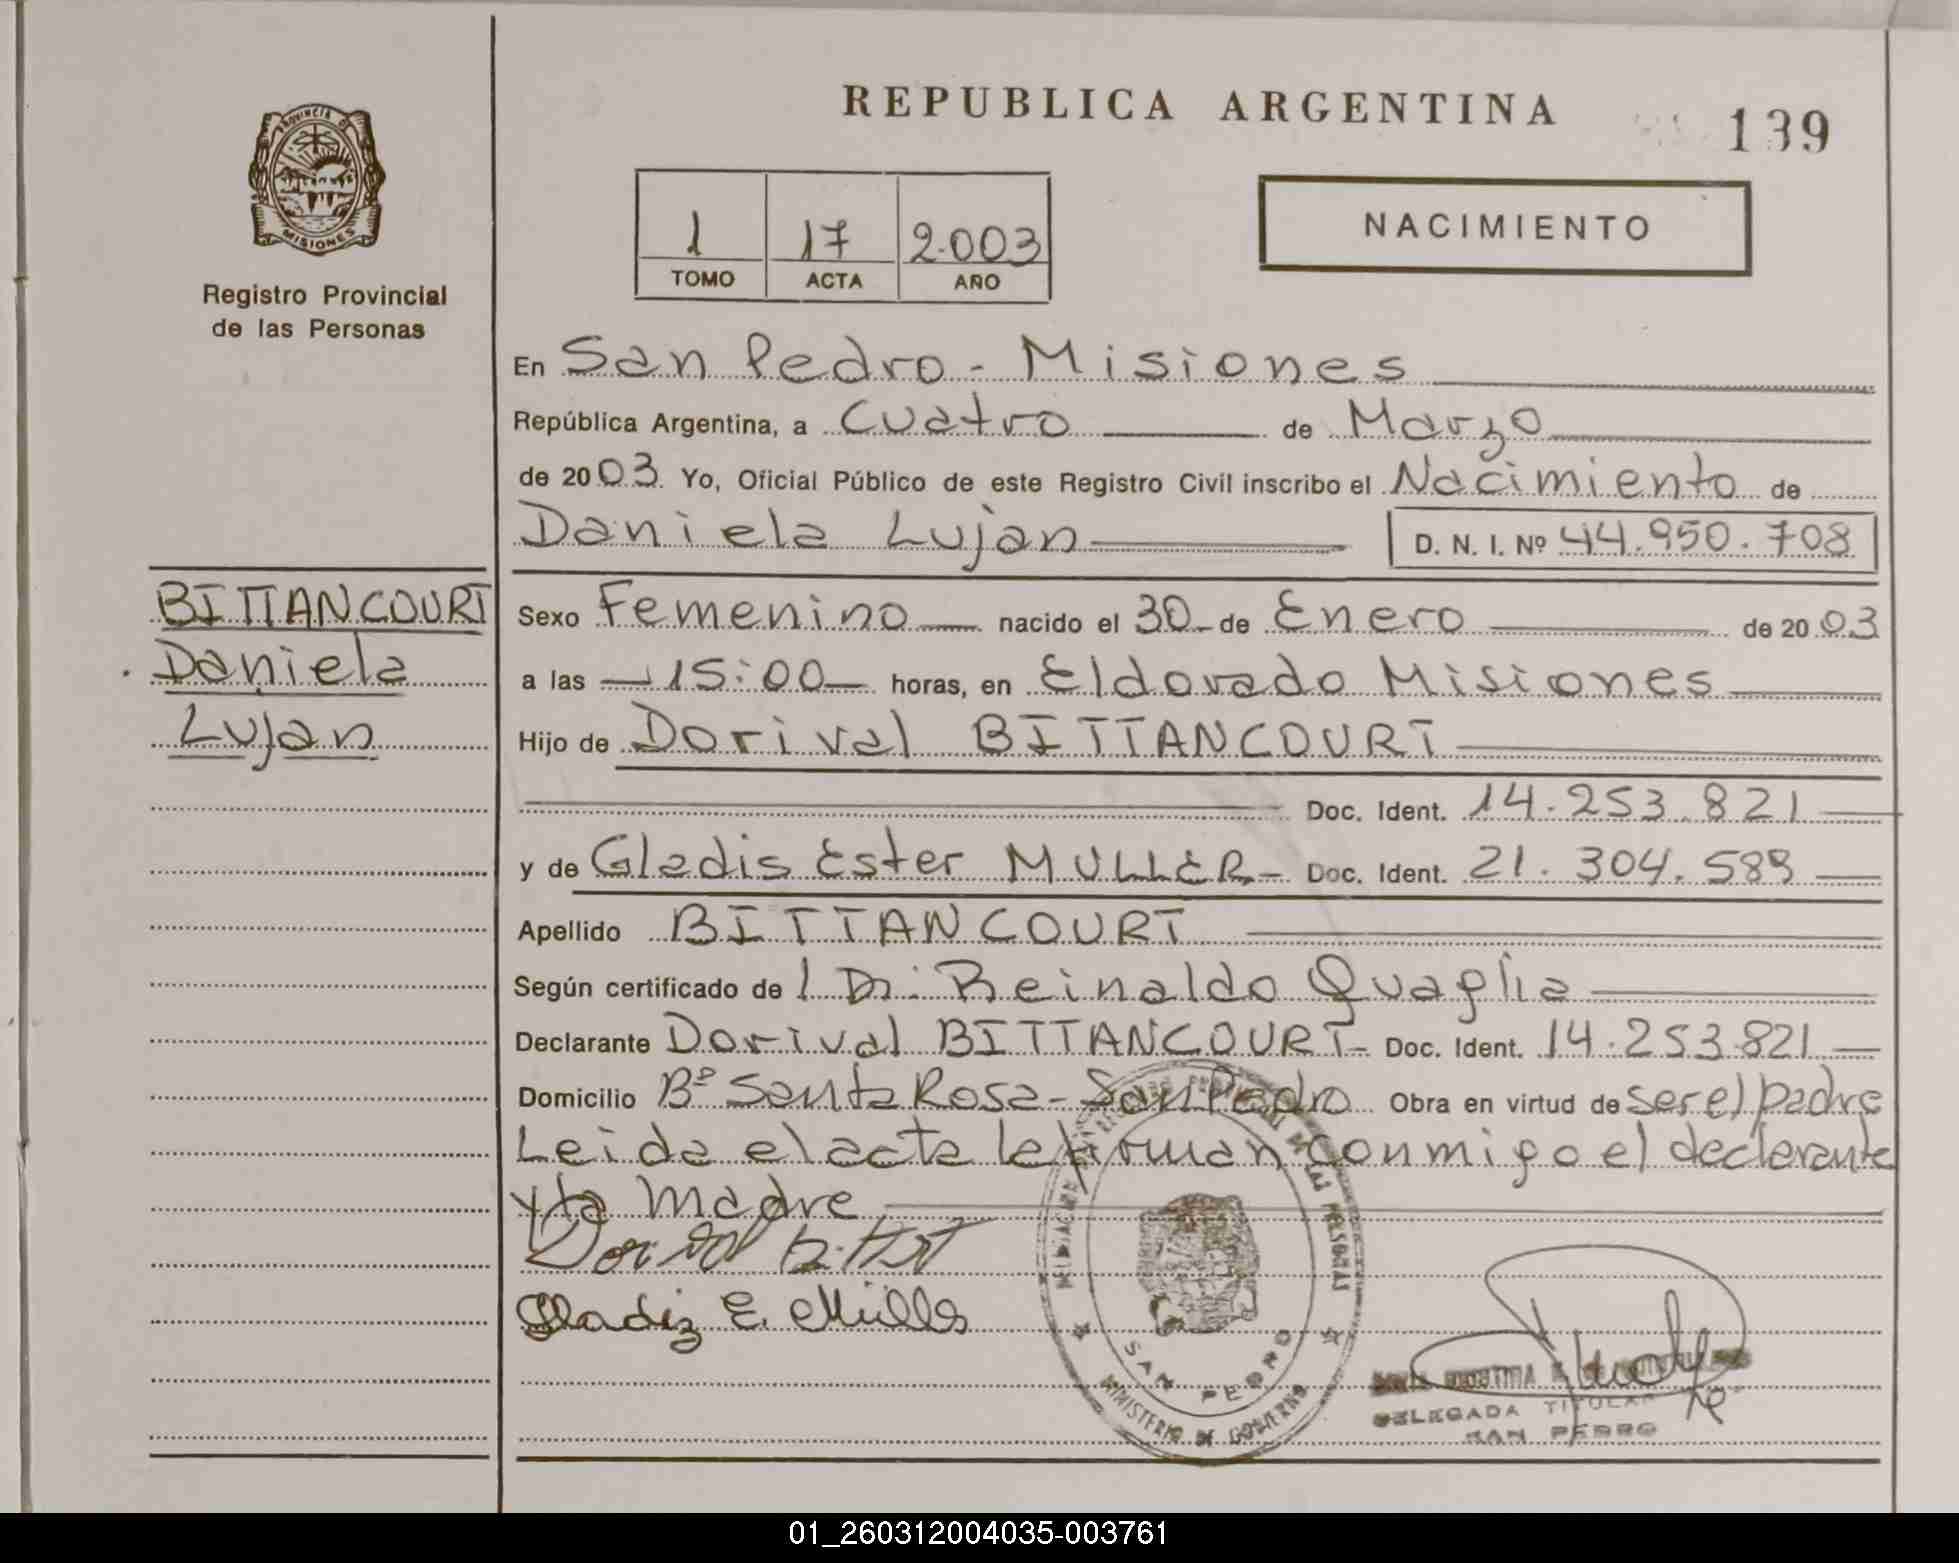 REPUBLICA ARGENTINA
139
PROVINCIA DE
MISIONES
Registro Provincial
de las Personas
1 17 2.003
TOMO ACTA AÑO
NACIMIENTO
En San Pedro - Misiones
República Argentina, a Cuatro de Marzo
de 2003 Yo, Oficial Público de este Registro Civil inscribo el Nacimiento de
Daniela Lujan D. N. I. Nº 44.950.708
BITTANCOURT
Daniela
Lujan
Sexo Femenino nacido el 30 de Enero de 2003
a las 15:00 horas, en Eldorado Misiones
Hijo de Dorival BITTANCOURT
Doc. Ident. 14.253.821
y de Gladis Ester MULLER- Doc. Ident. 21.304.589
Apellido BITTANCOURT
Según certificado de l Dr. Reinaldo Quaglia
Declarante Dorival BITTANCOURT- Doc. Ident. 14.253.821
Domicilio Bº Santa Rosa - San Pedro Obra en virtud de ser el padre
Leida el acta la firman conmigo el declarante
y la madre
Gladiz E. Müller
DE LAS PERSONAS
SAN PEDRO
MINISTERIO DE GOBIERNO
DELEGADA TITULAR
SAN PEDRO
01_260312004035-003761